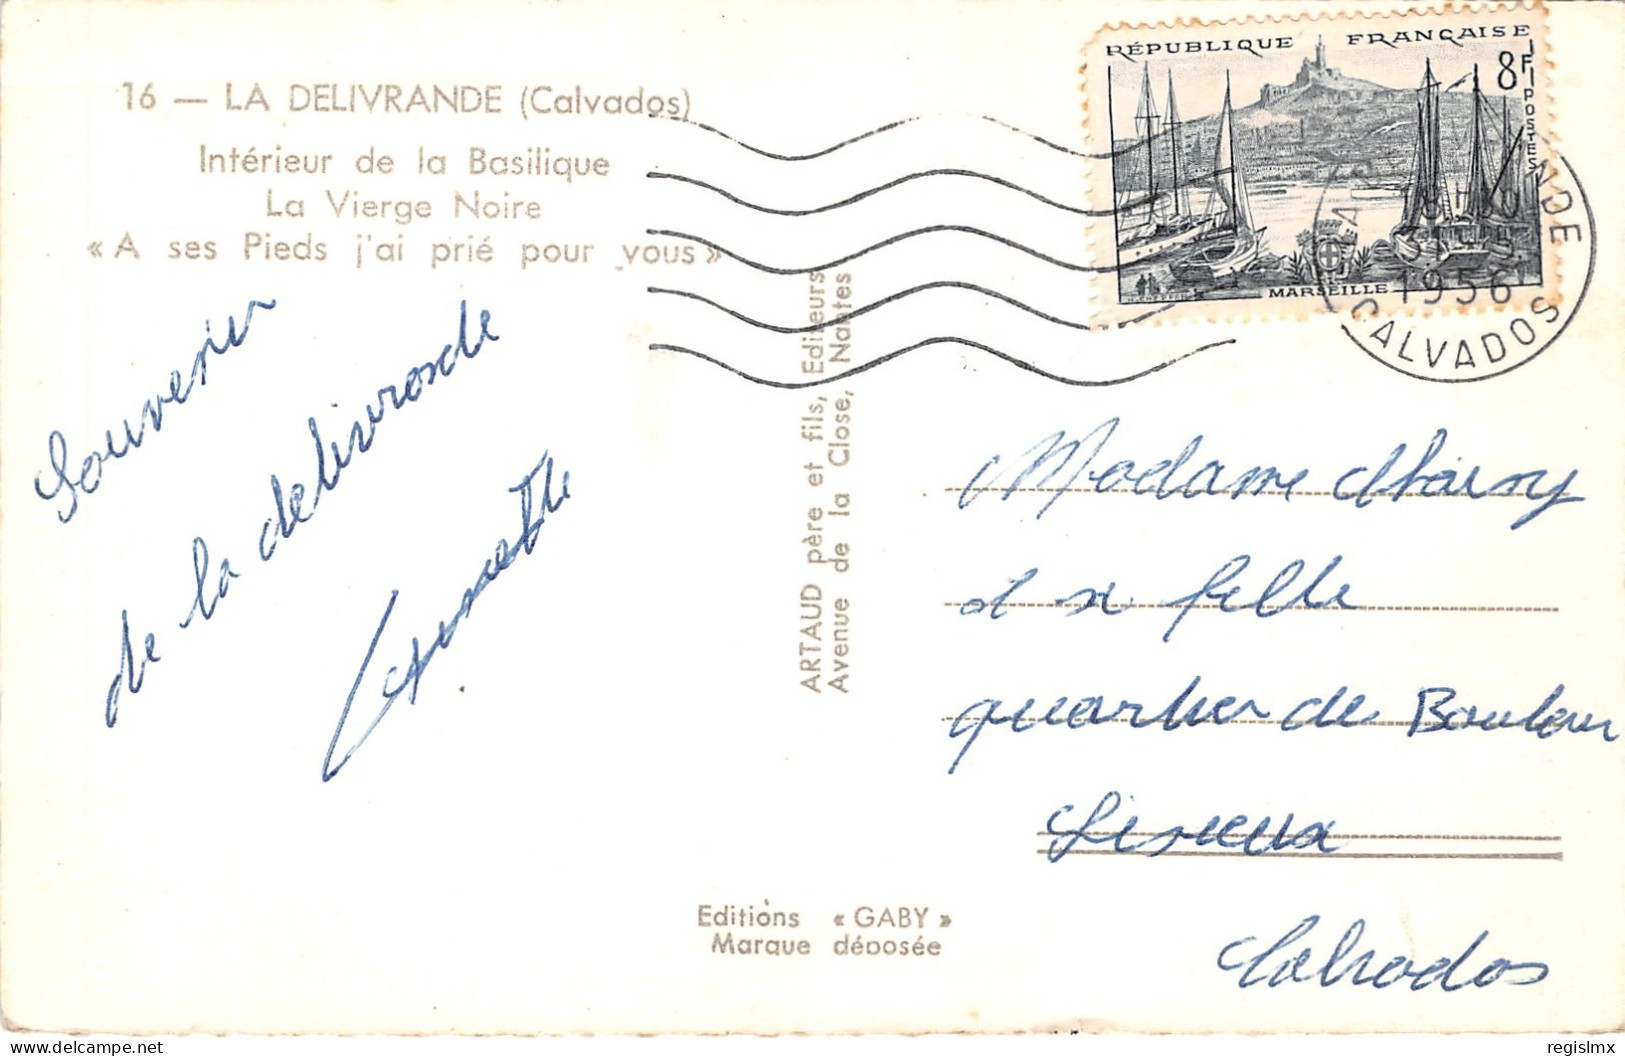 16 — LA DELIVRANDE (Calvados)
Intérieur de la Basilique
La Vierge Noire
« A ses Pieds j'ai prié pour vous »
Souvenir
de la delivrande
RÉPUBLIQUE FRANÇAISE
8F
POSTES
MARSEILLE
1956
CALVADOS
ARTAUD père et fils, Editeurs
Avenue de la Close, Nantes
Madame
fille
quartier de
Lisieux
Calvados
Editions « GABY »
Marque déposée
delcampe.net
regislmx